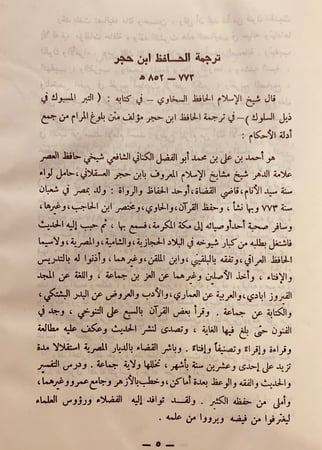 ترجمة الحافظ ابن حجر
٧٧٣ — ٨٥٢ هـ
قال شيخ الإسلام الحافظ السخاوي — في كتابه : ( التبر المسبوك في
ذيل السلوك ) — في ترجمة الحافظ ابن حجر مؤلف متن بلوغ المرام من جمع
أدلة الأحكام :
هو أحمد بن على بن محمد أبو الفضل الكناني الشافعي شيخي حافظ العصر
علامة الدهر شيخ مشايخ الإسلام المعروف بابن حجر العسقلاني، حامل لواء
سنة سيد الأنام، قاضي القضاة، أوحد الحفاظ والرواة . ولد بمصر في شعبان
سنة ٧٧٣ وبها نشأ ـ القرآن، والحاوي، ومختصر ابن الحاجب، وغيرها،
وسافر صحبة أحد أوصيائه إلى مكة المكرمة، فسمع بها، ثم حبب إليه الحديث
فاشتغل بطلبه من كبار شيوخه في البلاد الحجازية والشامية والمصرية، ولاسيما
الحافظ العراقي، وتفقه بالبلقيني، وابن الملقن، وغيرهما، وأذنوا له بالتدريس
والإفتاء . وأخذ الأصلين وغيرهما عن العز بن جماعة، واللغة عن المجد
الفيروز ابادي، والعربية عن العماري، والأدب والعروض عن البدر البشتكي،
والكتابة عن جماعة . وقرأ بعض القرآن بالسبع على التنوخي، وجد في
الفنون حتى بلغ فيها الغاية، وتصدى لنشر الحديث وعكف عليه مطالعة
وقراءة وإقراءة وتصنيفاً وإفتاء . وباشر القضاء بالديار المصرية استقلالا مدة
تزيد على إحدى وعشرين سنة بأشهر، تخللها ولاية جماعة . ودرس التفسير
والحديث والفقه والوعظ بعدة أماكن، وخطب بالأزهر وجامع عمرو وغيرهما،
وأملى من حفظه الكثير . ولقد توافد إليه الفضلاء ورؤوس العلماء
ليغترفوا من فيضه ويرووا من علمه .
— ٥ —